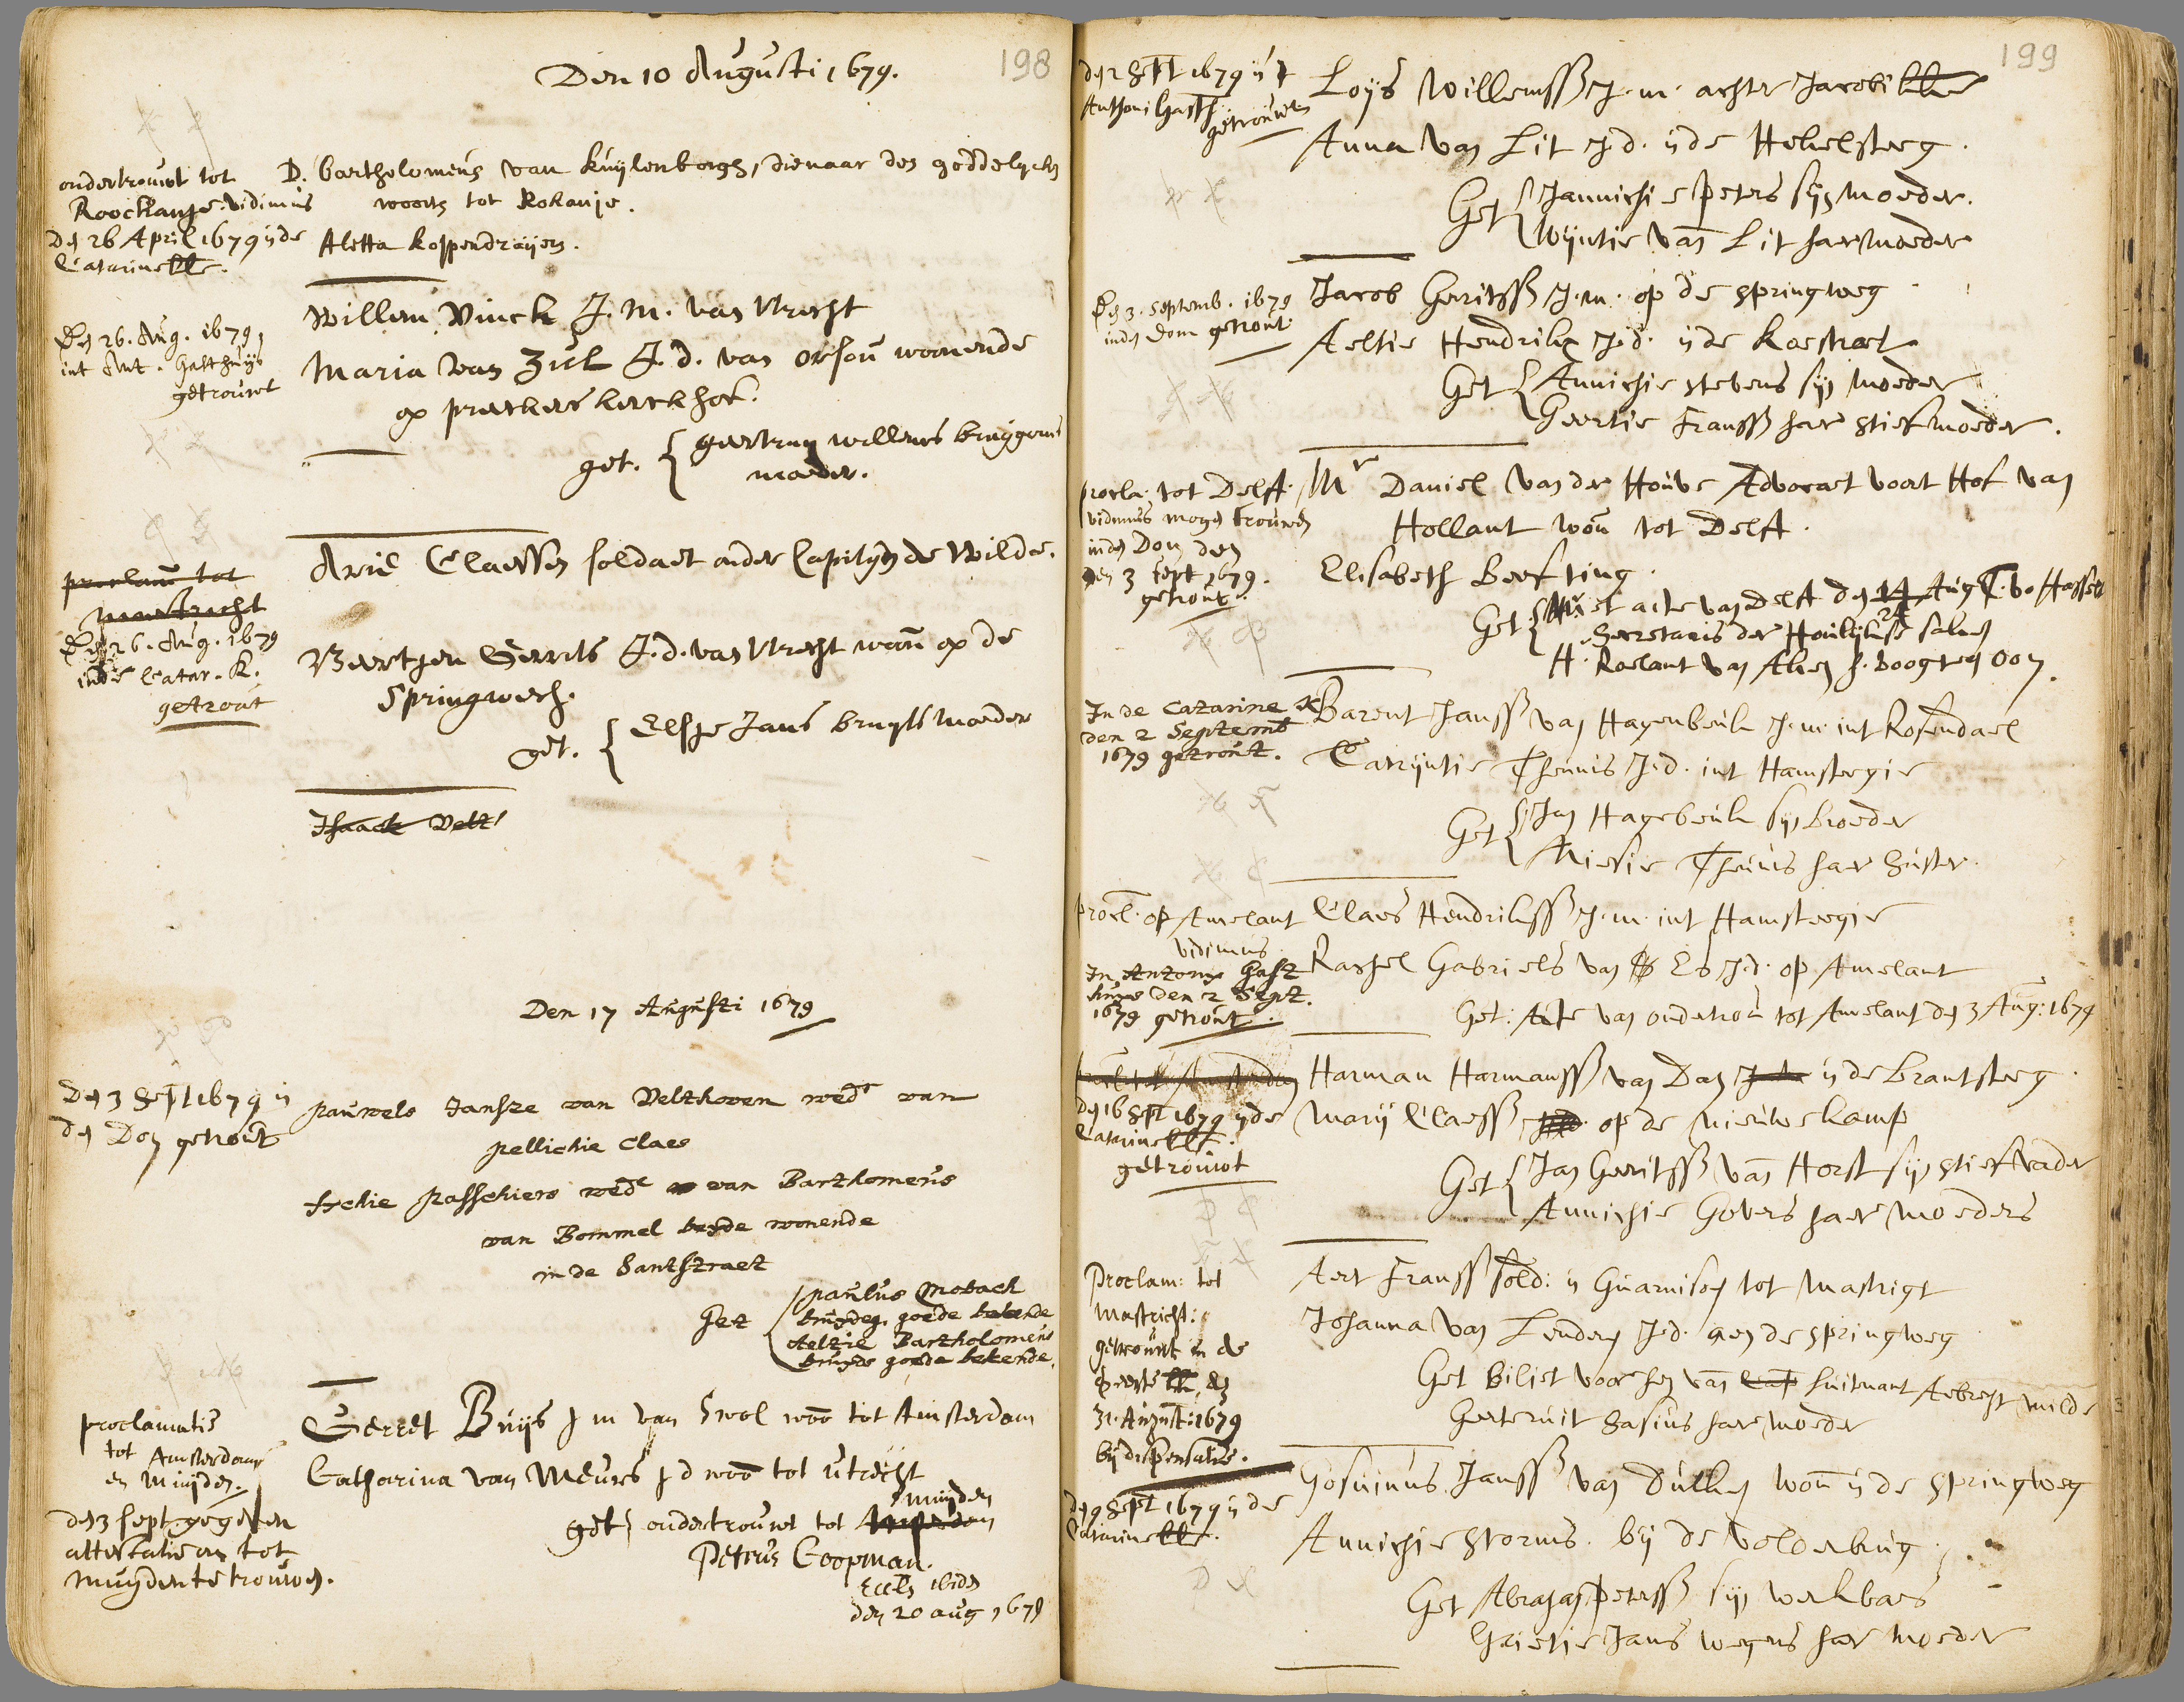 198
Den 10 Augusti 1679.
ondertrouwt tot
Roockanje. vidimus
den 26 April 1679 in de
Catarine kke.
D. Bartholomeus van Kuylenborgh, dienaar des goddelycken
woorts tot Rokanje.
Aletta Koppendraijers.
Den 26. Aug. 1679,
int Ant. Gasthuijs
getrouwt
Willem Vinck J. M. van Utrecht
Maria van Zul J. d. van Orsou woonende
op preekers kerckhof.
get. { geertruy willems bruygoms
moeder.
proclam tot
maestricht
Den 26. Aug. 1679
in de Catar. K.
getrout
Arie Claessen soldaet onder Capityn de Wilde.
Beertjen Gerrits J. d. van Utrecht woont op de
Springwech.
get. { Elsje Jans bruyts moeder
Isaack Velt
Den 17 Augusti 1679
Den 3 Sept 1679 in
den Dom getrout
pauwels Jansze van Velthoven wedr van
pellichie Claes
Itchie passchiers wede van Bartlomeus
van Bommel beyde wonende
in de Santstraet
Get { paulus Mobach
bruydeg. goede bekende
Aeltie Bartholomeus
bruyds goede bekende.
proclamatie
tot Amsterdam
en Muijden.
den 3 sept gegeven
attestatie om tot
muyden te trouwen.
Gerret Buijs j m van Swol woo tot Amsterdam
Catharina van Meurs j d woo tot Utrecht
muijden
get } ondertrouwt tot Amsterdam
Petrus Coopman.
Eccls ibidem
den 20 aug 1679
199
den 2 Sept 1679 int
Anthoni Gasth
getrouwt
Loijs Willemss J. m. achter Jacobi kke
Anna van Lit J. d. in de Hekelsteeg.
Get { Jannichie Peters sijn moeder.
Wijntie van Lit haer moeder
Den 3. Septemb. 1679
in den Dom getrout.
Jacob Gerritss J. m. op de Springweg
Aeltie Hendriks J. d. in de Kaestraet
Get { Annichie Stevens sijn moeder
Geertie Franss haer stiefmoeder.
procla: tot Delft.
vidimus mogen trouwen
in den Dom den
den 3 sept 1679.
getrout.
Mr Daniel van der Houve Advocaet voort Hof van
Hollant won tot Delft.
Elisabeth Beefting.
Get { Met acte van Delft den 14 Aug
Secretaris der Houlijkse saken
H. Roelant van Alien oom.
In de Catarine K
den 2 Septemb
1679 getrout.
Barent Janss van Hagenbeuk J. m. int Rosendael
Catrijntie Theunis J. d. int Hamsteegie
Get { Jan Hagebeuk sijn broeder
Mietie Theunis haer suster.
procl. op Amelant
vidimus
In Antony Gast
huys den 2 Sept.
1679 getrout.
Claes Hendrikss J. m. int Hamsteegie
Rachel Gabriels van Es J. d. op Amelant
Get: Acte van ondertrou tot Amelant den 3 Aug: 1679
procl tot Amsterdam
den 16 Sept 1679 in de
Catarine kke.
getrouwt
Harman Harmanss van Dam in de Brantsteeg.
Marij Claess op de Nieuwe kamp
Get { Jan Gerritss van Horst sijn stiefvader
Annichie Govers haer moeders
Proclam: tot
Mastricht:
getrouwt in de
Geerte kk, den
31. August: 1679
bij dispensatie.
Aert Franss sold: in Guarnison tot Mastrigt
Johanna van Lenden J. d. aen de Springweg
Get Biliet voor hem van luitnant Aebrecht Wilde
Geerteruit Sasius haer moeder
den 9 Sept 1679 in de
Catarine kke.
Gosuinus Janss van Dulken won in de Springweg
Annichie Storms. bij de Volderbrug.
Get Abraham Peterss sijn werkbaes
Grietie Jans wegens haer moeder